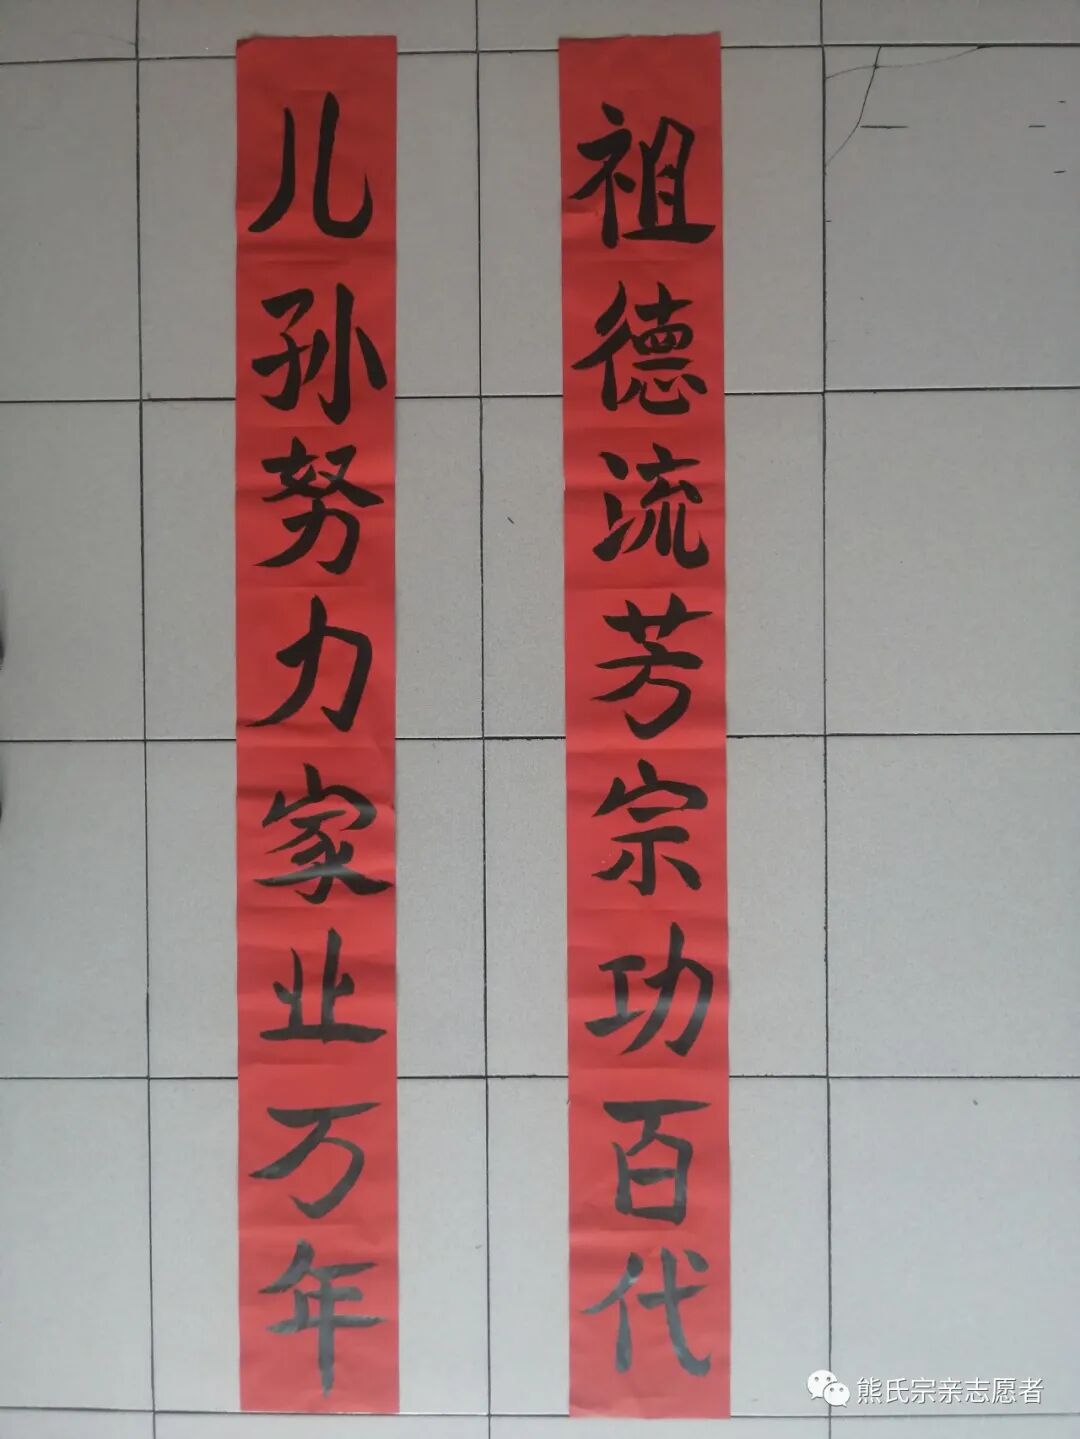 祖德流芳宗功百代
儿孙努力家业万年
熊氏宗亲志愿者